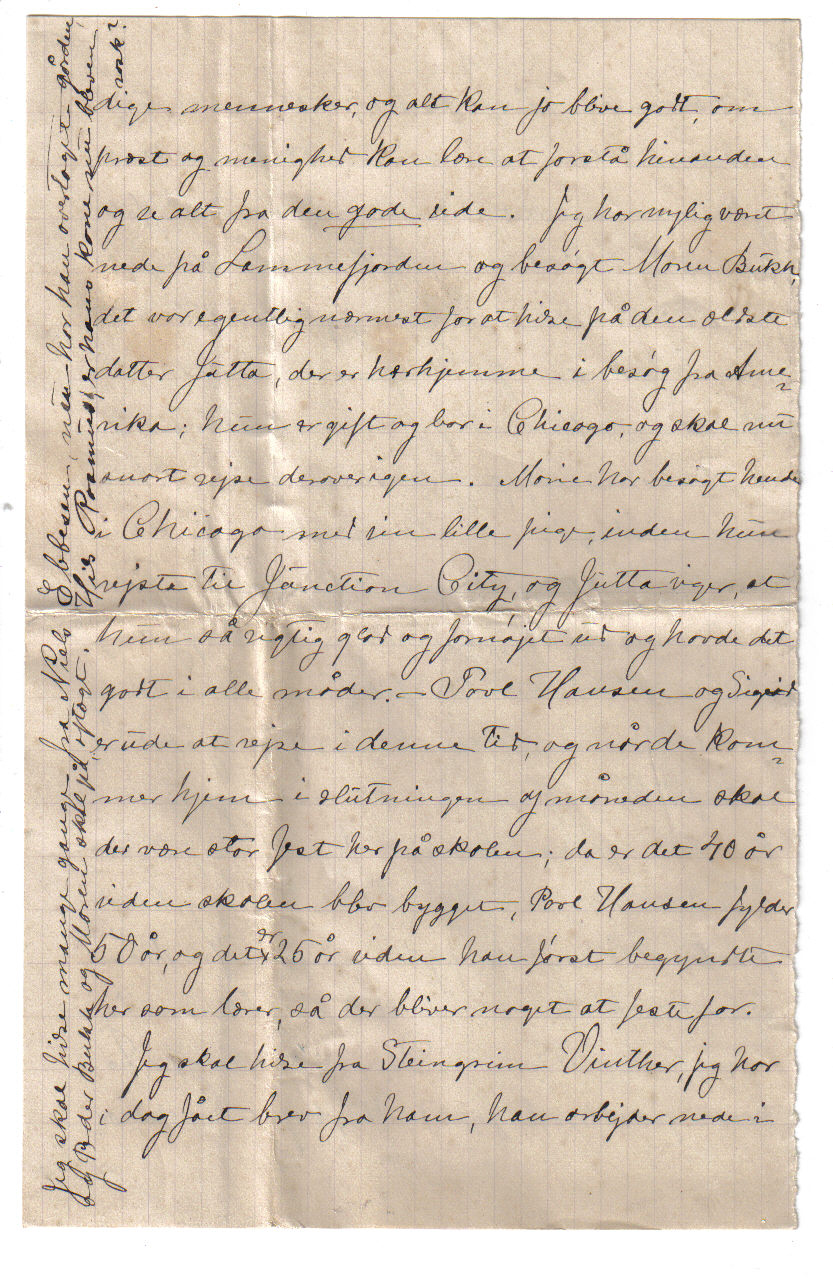 dige mennesker, og alt kan jo blive godt, om
præst og menighed kan lære at forstå hinanden
og se alt fra den gode side. Jeg har nylig været
nede på Lammefjorden og besøgt Maren Bukh,
det var egentlig nærmest for at hilse på den ældste
datter Jutta, der er herhjemme i besøg fra Ame-
rika; hun er gift og bor i Chicago, og skal nu
snart rejse derover igen. Marie har besøgt hende
i Chicago med sin lille pige, inden hun
rejste til Junction City, og Jutta siger, at
hun så rigtig glad og fornøjet ud og havde det
godt i alle måder. – Povl Hansen og Sigrid
er ude at rejse i denne tid, og når de kom-
mer hjem i slutningen af måneden skal
der være stor fest her på skolen; da er det 40 år
siden skolen blev bygget, Povl Hansen fylder
50 år, og det er 25 år siden han først begyndte
her som lærer, så der bliver noget at feste for.
Jeg skal hilse fra Steingrim Vinther, jeg har
i dag fået brev fra ham, han arbejder nede i
Jeg skal hilse mange gange fra Niels Ebbesen, nu har han overtaget gården,
og Peder Bukh og Maren skal på aftægt. Hils Rasmus, er hans kone nu bleven
rask?